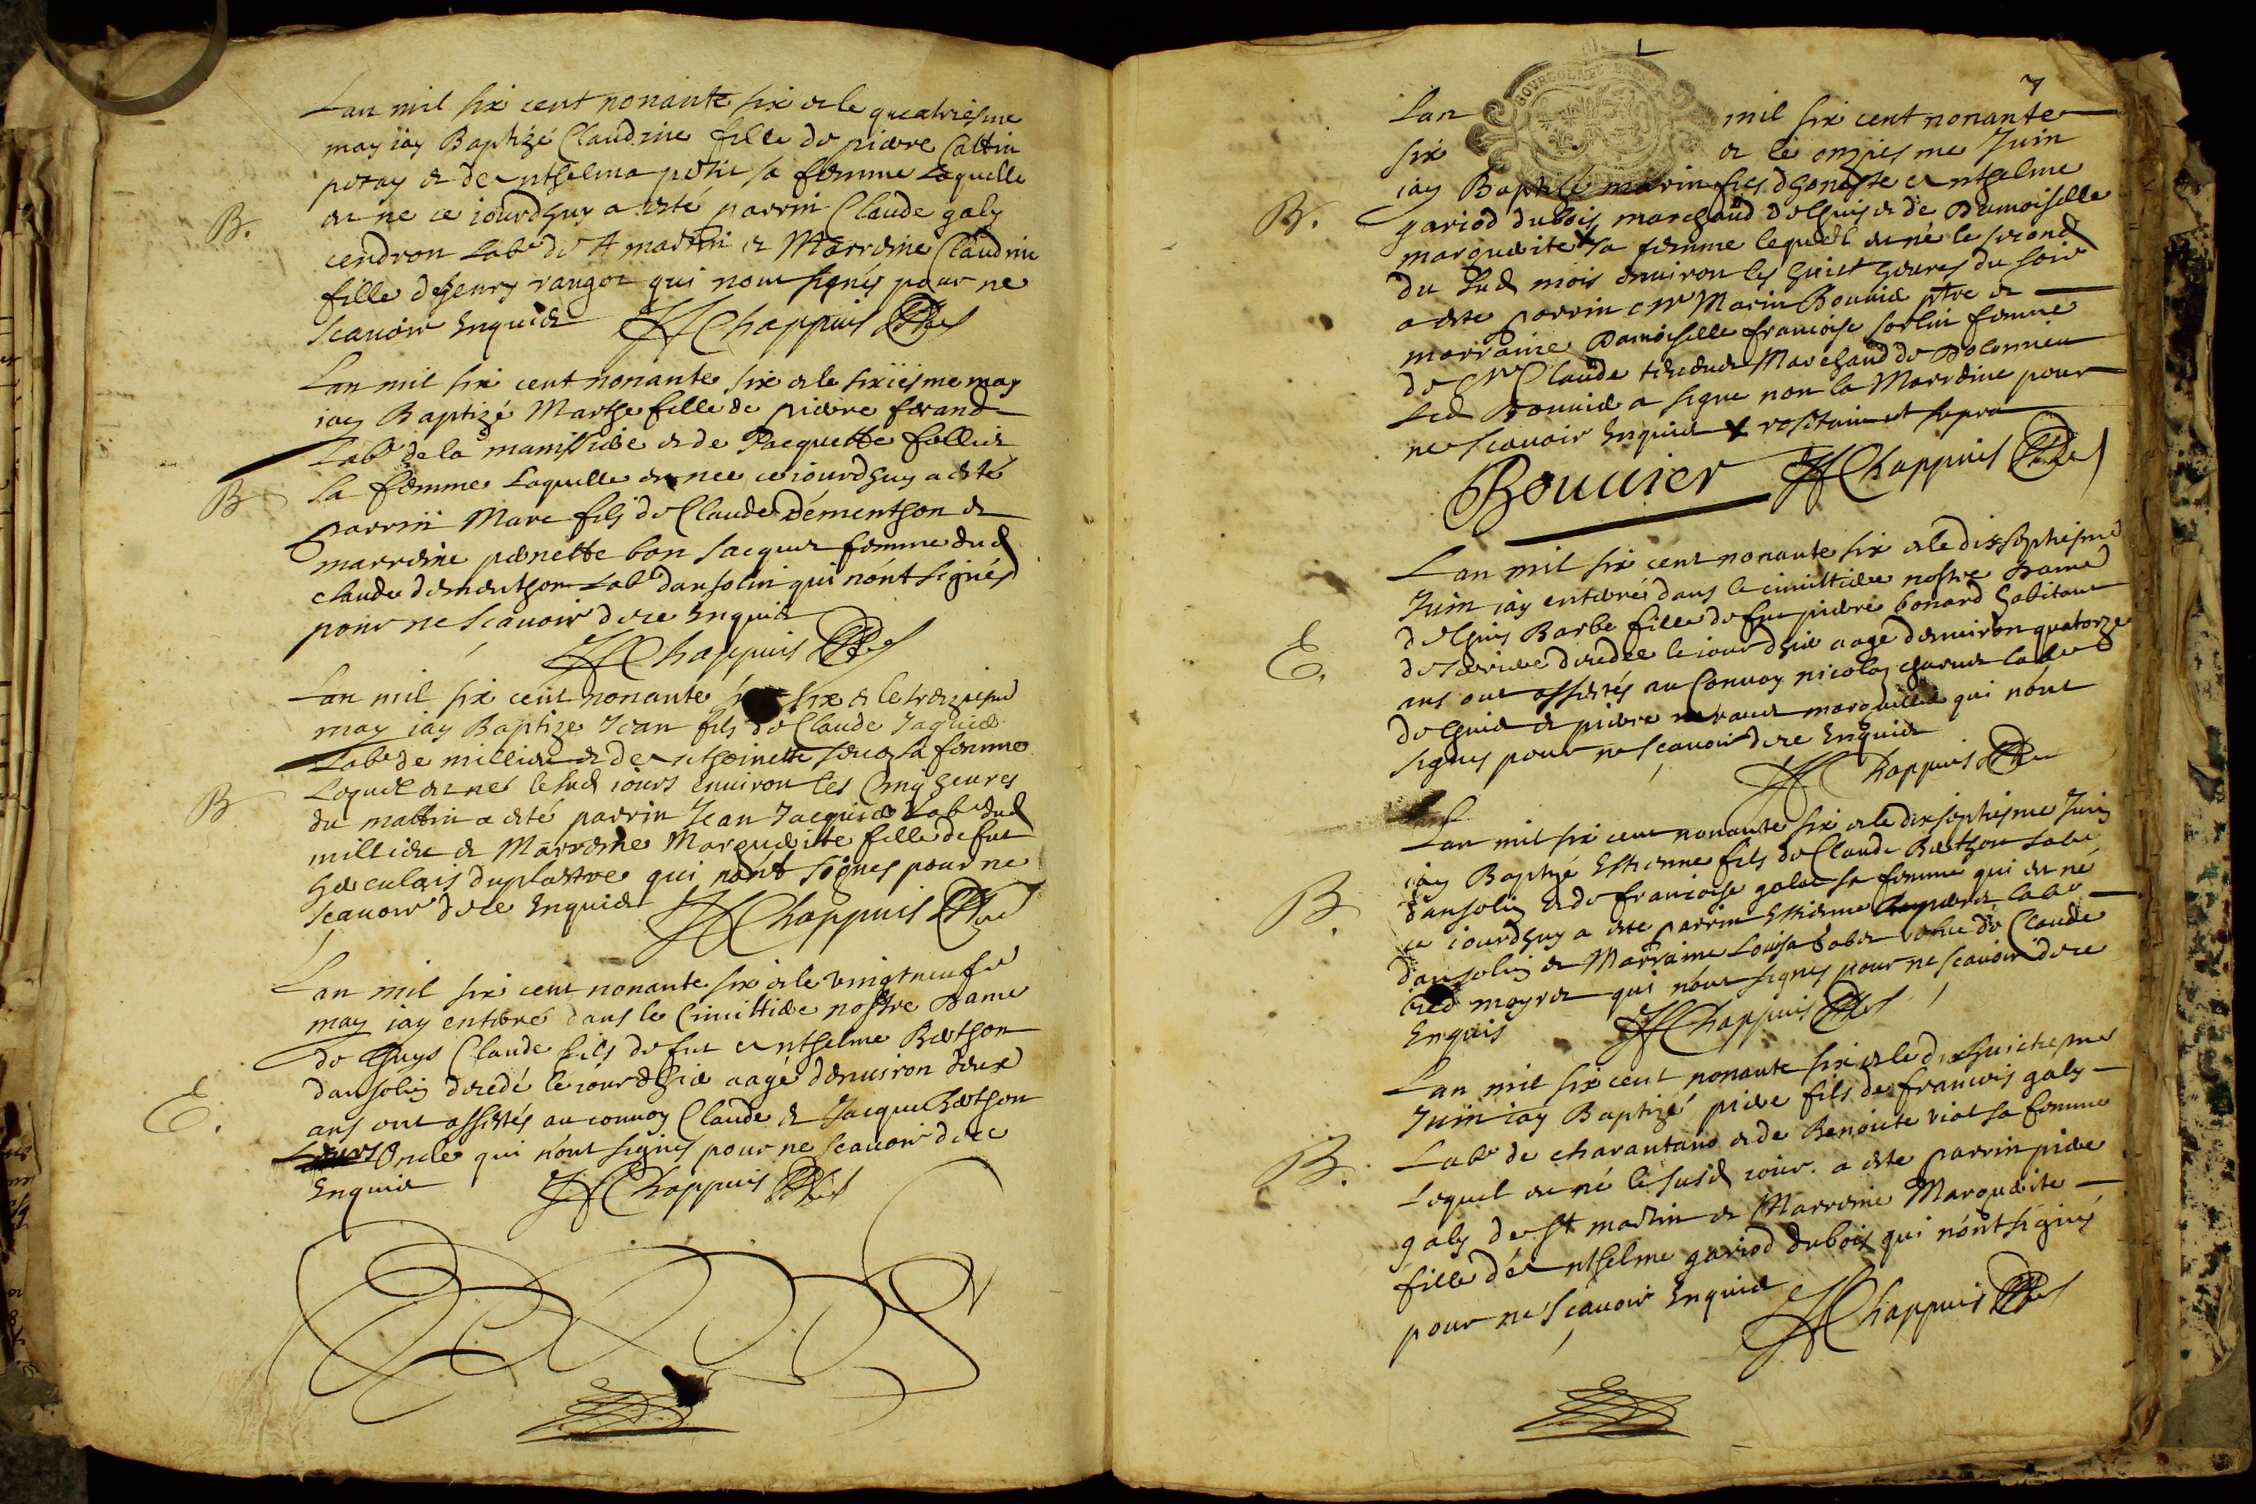 Lan mil six cent nonante six & le quatriesme
may iay Baptizé Claudine fille de pierre Cattin
peray & de Anthelma petit sa femme Laquelle
est ne ce iourdhuy a esté parrin Claude galy
B.
cendron Lab^r de st martin & Marreine Claudine
fille de henry ranget qui nont signés pour ne
scavoir Enquis JChappuis
Lan mil six cent nonante six & le sixiesme may
iay Baptizé Marthe fille de pierre ferand
Lab^r de la manissiere & de Pacquette follier
B
sa femme Laquelle est nee ce iourdhuy a esté
parrin Marc fils de Claude dementhon &
marreine pernette bon Jacquet femme dud
claude dementhon Lab^r dansolin qui nónt signés
pour ne scavoir de ce Enquis
JChappuis
Lan mil six cent nonante six & le treziesme
may iay Baptize Jean fils de Claude Jaquier
Lab^r de millieu & de Anthoinette sa femme
Lequel est né le sud iours environ les Cinq heures
B
du mattin a esté parrin Jean Jacquier Lab^r dud
millieu & Marreine Marguerite fille de fut
herculais duplastre qui nónt signes pour ne
scavoir de ce Enquis JChappuis
Lan mil six cent nonante six & le vingtneufie
may iay enterré dans le Cimittiere nostre Dame
de Lhuys Claude fils de fut Anthelme Berthon
dansolin decedé le iour dhier aagé denviron deux
E.
ans ont assistés au convoy Claude & Jacque Berthon
Oncle qui nónt signés pour ne scavoir de ce
Enquis JChappuis
7
BOURGOGNE BRESSE
Lan mil six cent nonante
six & le onziesme Juin
iay Baptisé marin fils dhoneste Anthelme
B.
gariod dubois marchand de Lhuis & de Damoiselle
marguerite X sa femme lequel est né le second
du sud mois environ les huict heures du soir
a este parrin Mr Marin Bouvier ptre &
marraine Damoiselle francoise sorlin femme
de Mr Claude Marchand de Dolomieu
Led Bouvier a signe non la Marreine pour
ne scavoir Enquis X ut supra
Bouuier JChappuis
Lan mil six cent nonante six & le dixseptiesme
Juin iay enterré dans le cimittiere nostre Dame
de Lhuis Barbe fille de fut pierre bonard habitant
de decedee le iour dhier aagé denviron quatorze
E.
ans ont assistés au Convoy nicolas charvet lab^r
de Lhuis & pierre marguillier qui nónt
signes pour ne scavoir de ce Enquis
JChappuis
Lan mil six cent nonante six & le dixseptiesme Juin
iay Baptizé Estienne fils de Claude Berthon Lab^r
B.
dansolin & de francoise galet sa femme qui est né
ce iourdhuy a este parrin Estienne lab^r
dansolin & Marraine Louisa vefve de Claude
moyret qui nónt signes pour ne scavoir de ce
Enquis JChappuis
Lan mil six cent nonante six & le dixhuictiesme
Juin iay Baptizé pierre fils de francois galy
Lab^r de charantano & de Benoite viat sa femme
B.
Lequel est né le susd iour. a este parrin pierre
galy de st martin & Marreine Marguerite
fille de Anthelme gariod dubois qui nónt signés
pour ne scavoir Enquis
JChappuis